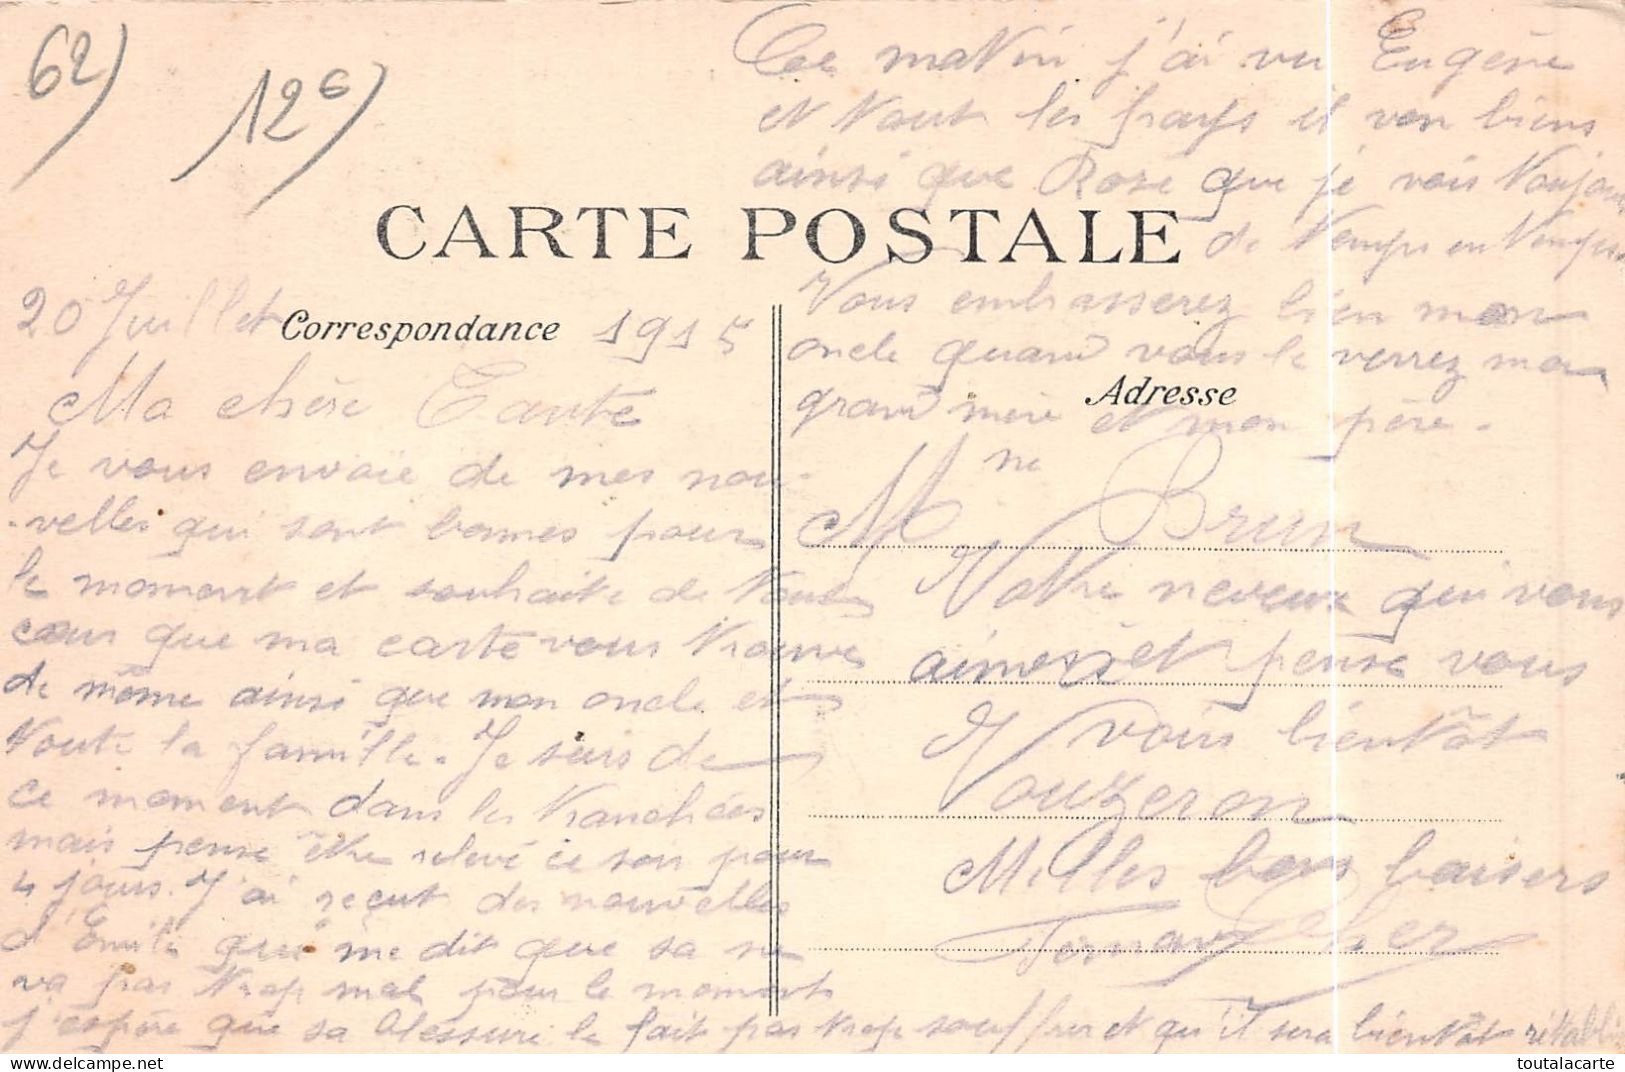 62)
12€)
CARTE POSTALE
Correspondance
Adresse
20 Juillet 1915
Ma chère Tante
Je vous envoie de mes nou-
-velles qui sont bonnes pour
le moment et souhaite de tout
cœur que ma carte vous trouve
de même ainsi que mon oncle et
toute la famille. Je suis de
ce moment dans les tranchées
mais pense être relevé ce soir pour
4 jours. J'ai reçut des nouvelles
d'Emile qui me dit que sa ne
va pas trop mal pour le moment
j'espère que sa blessure le fait pas trop souffrir et qu'il sera bientôt rétabli
Ce matin j'ai vu Eugène
et tout les pays il von biens
ainsi que Rose que je vois toujours
de temps en temps.
Vous embrasserez bien mon
oncle quand vous le verrez ma
grand mère et mon père.
Mme Brun
Votre neveux qui vous
aimes et pense vous
voir bientôt
Vouzeron
Milles bons baisers
Fernand
Cher
toutalacarte